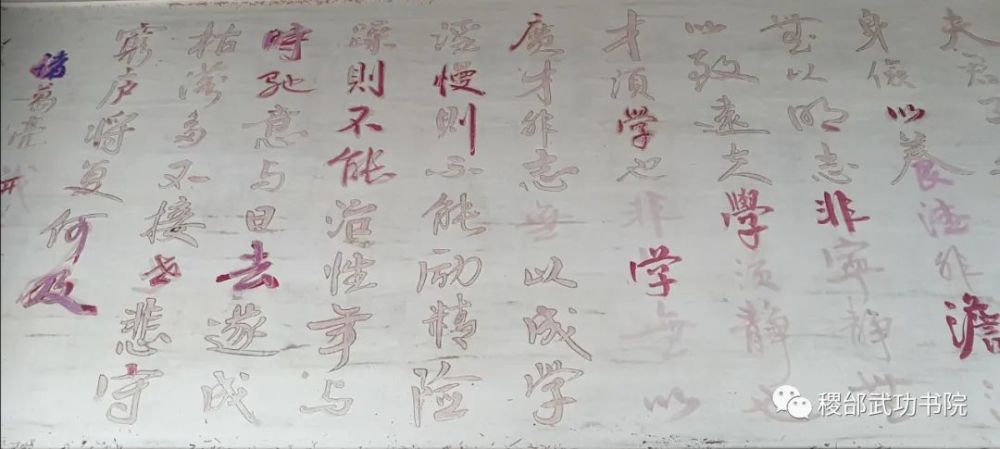 夫君
身俭以养德非澹
無以明志非寧静無
以致遠夫學須静也
才須学也非学無以
廣才非志無以成学
淫慢則不能励精险
躁則不能治性年与
時驰意与日去遂成
枯落多不接世悲守
穷庐将复何及
诸葛亮
稷邰武功书院